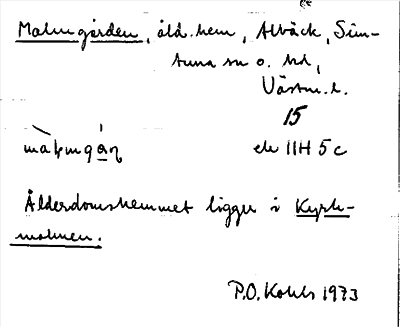 Malmgården, åld.hem, Altäck, Sim-
tuna sn o. hd,
Västm. l.
15
ek 11H 5c
Ålderdomshemmet ligger i Kyrk-
malmen.
P.O. Kohls 1973